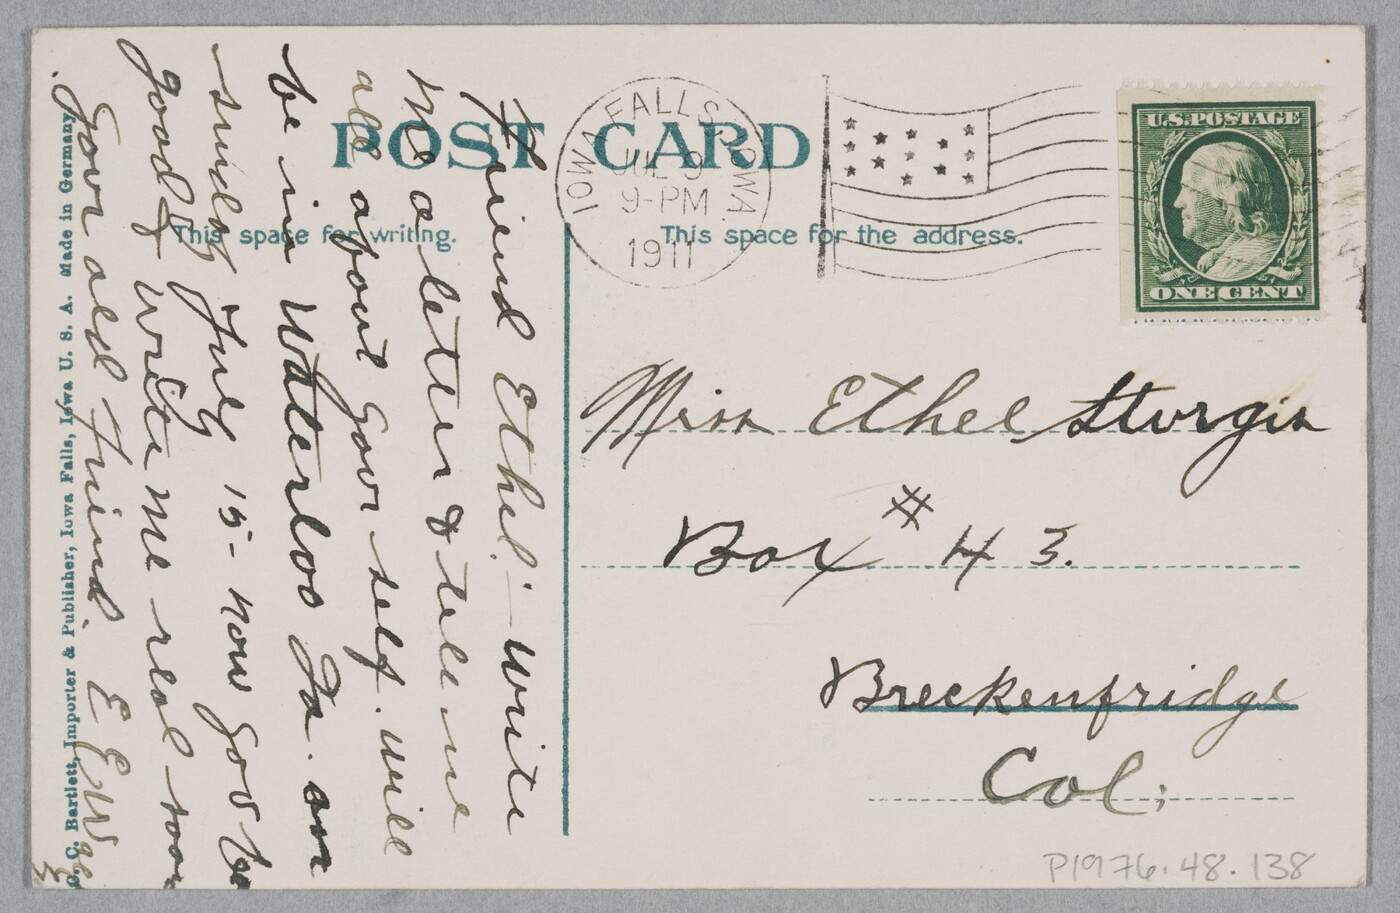 POST CARD
This space for writing.
This space for the address.
IOWA FALLS, IOWA.
JUL 9
9-PM
1911
U.S. POSTAGE
ONE CENT
Friend Ethel:- write
me a letter & tell me
all about your self. will
be in Waterloo Ia. on
sunday July 15- now you be
good & write me real soon
your old friend. E
Miss Ethel Sturgis
Box # 43.
Breckenfridge
Col;
P1976.48.138
C. Bartlett, Importer & Publisher, Iowa Falls, Iowa U. S. A. Made in Germany.